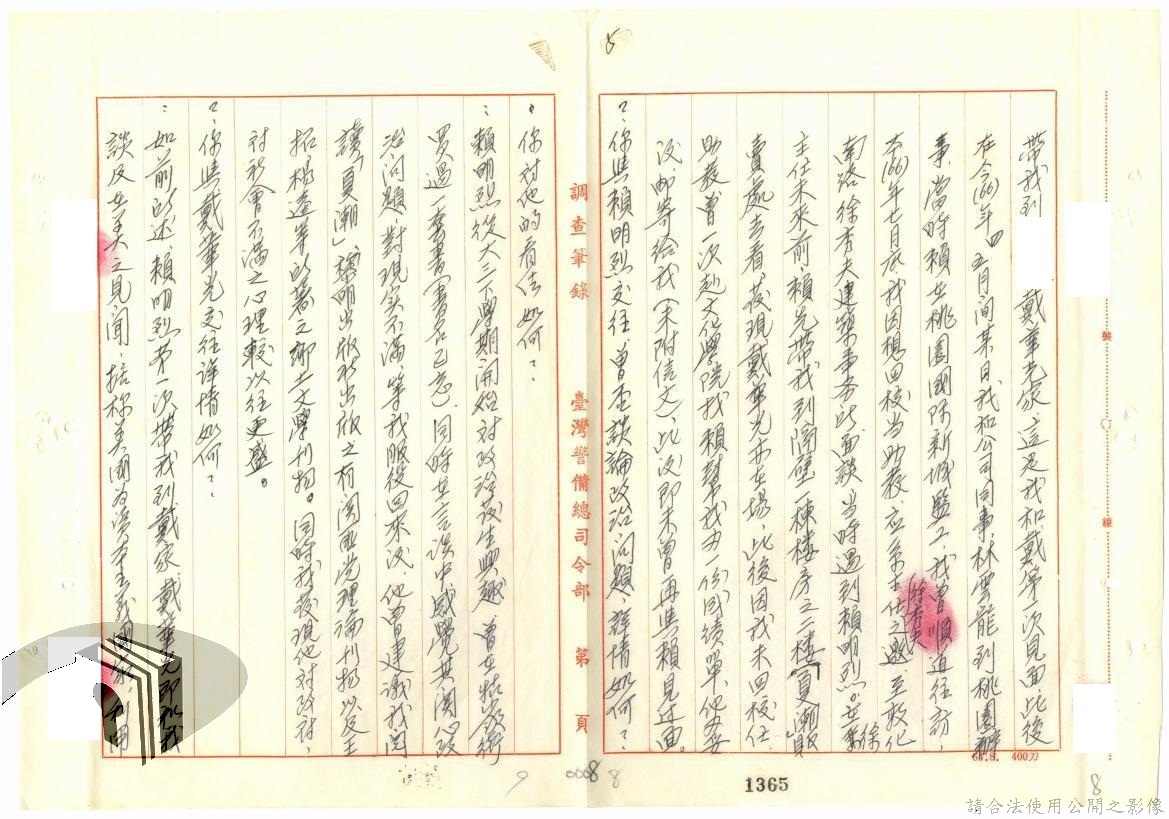 帶我到 戴華光家,這是我和戴第一次見面,此後
在今(66)年四、五月間某日,我和公司同事林雲龍到桃園辦
事,當時賴在桃園國際新城監工,我曾順道往訪,
本(66)年七月底,我因想回校當助教,應系主任之邀至敦化
徐秀夫
南路徐秀夫建築事務所面談,當時遇到賴明烈,在等徐
主任未來前,賴先帶我到隔壁一棟樓房之二樓「夏潮」販
賣處去看,發現戴華光亦在場,此後因我未回校任
助教,曾一次赴文化學院找賴幫我办一份成績單,他办妥
後,邮寄給我(未附信文),此後即未曾再與賴見过面。
?:你與賴明烈交往,曾否談論政治問題?詳情如何?
調查筆錄 臺灣警備總司令部 第 頁
?:你对他的看法如何?
:賴明烈從大三下學期開始对政治發生興趣,曾在牯嶺街
買過一套書(書名已忘),同時在言談中感覺其関心政
治問題,對現实不滿,等我服役回來後,他曾建議我閱
讀「夏潮」、黎明出版社出版之有関 党理論刊物以及王
拓、楊逵等所著之鄉土文學刊物。同時我發現他对政府、
对社會不滿之心理較以往更盛。
?:你與戴華光交往詳情如何?
:如前所述,賴明烈第一次帶我到戴家,戴華光即和我
談及在美之見聞,指稱美國為資本主義國家,利用
裝
線
66.8. 400刀
1365
0008
8
8
9
5
請合法使用公開之影像